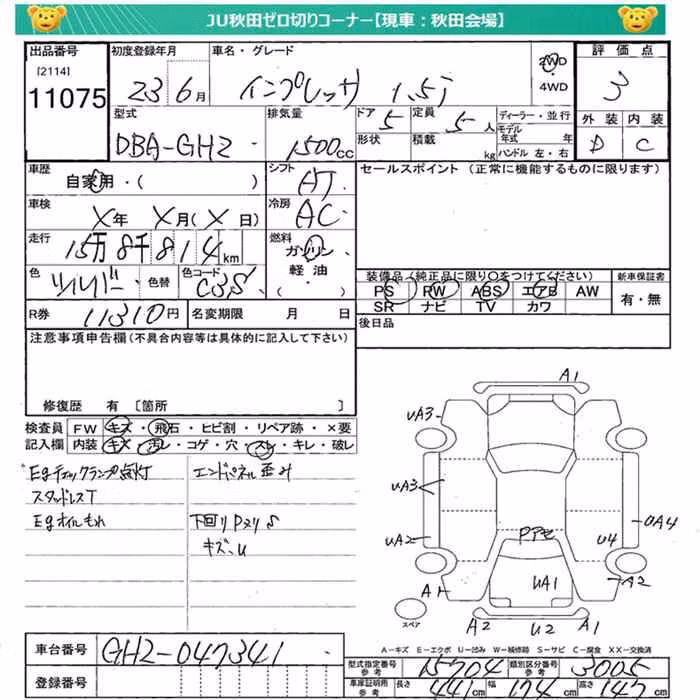 JU秋田ゼロ切りコーナー【現車：秋田会場】
出品番号 初度登録年月 車名・グレード 2WD 評価点
[2114] 11075 23年 6月 インプレッサ 1.5i 4WD 3
型式 排気量 ドア 5 定員 5人 ディーラー・並行 外装 内装
DBA-GH2 1500cc 形状 積載 kg モデル年式 年 D C
ハンドル 左・右
車歴 シフト セールスポイント (正常に機能するものに限ります)
自家用・( ) AT
車検 冷房
X年 X月(X日) AC
走行 燃料
15万8千814km ガソリン
軽油
色 シルバー 色替 色コード C3S ・( )
装備品(純正品に限り○をつけてください) 新車保証書
PS PW ABS エアB AW 有・無
SR ナビ TV カワ
R券 11310円 名変期限 月 日 後日品
注意事項申告欄(不具合内容等は具体的に記入して下さい)
修復歴 有 [箇所 ]
検査員記入欄 FW キズ・飛石・ヒビ割・リペア跡・×要
内装 キズ・汚レ・コゲ・穴・スレ・キレ・破レ
Egチェックランプ点灯 エンドパネル歪み
スタッドレスT
Egオイルもれ 下回りPヌリS
キズ、U
A1
UA3
UA3
UA2
UA4
U4
Pアセ
UA1
A1 A2
スペア A2 U2 A1
A-キズ E-エクボ U-凹み W-補修跡 S-サビ C-腐食 XX-交換済
車台番号 GH2-047341
登録番号
型式指定番号 参考 15704 類別区分番号 参考 3005
車庫証明用 参考 長さ 441cm 幅 174cm 高さ 147cm